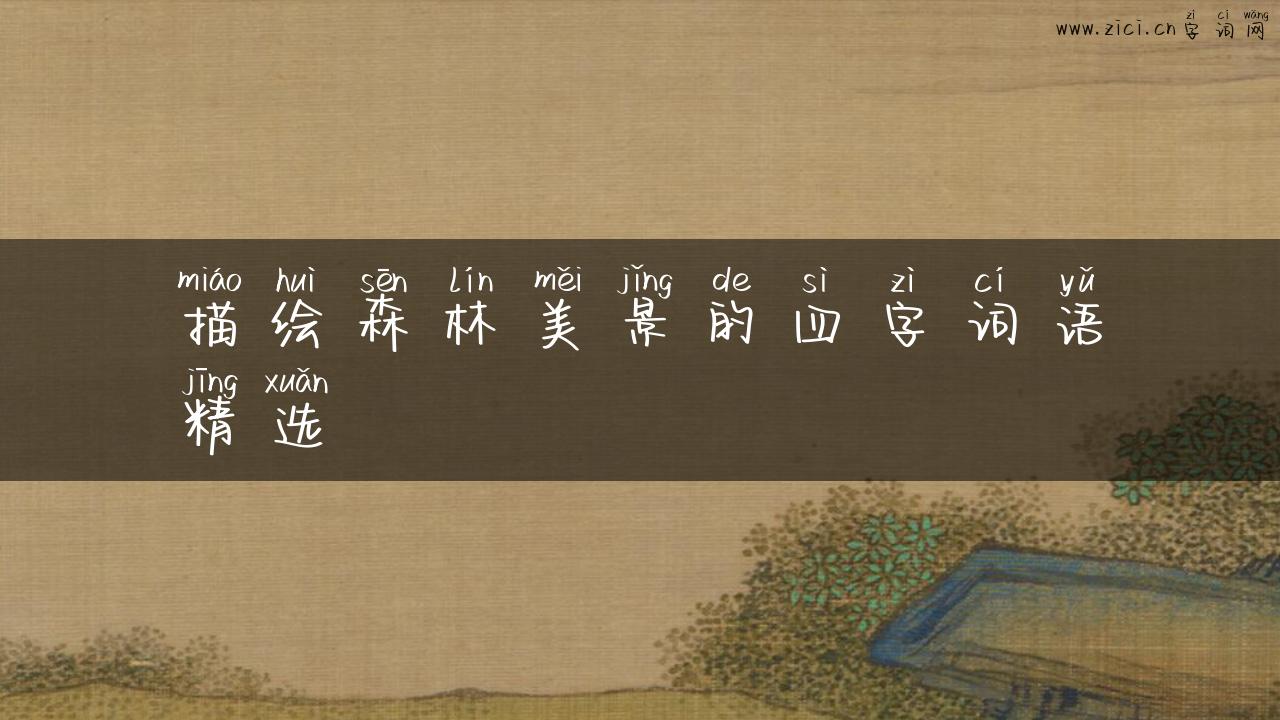 zì cí wǎng
www.zici.cn字词网
miáo huì sēn lín měi jǐng de sì zì cí yǔ
描绘森林美景的四字词语
jīng xuǎn
精选